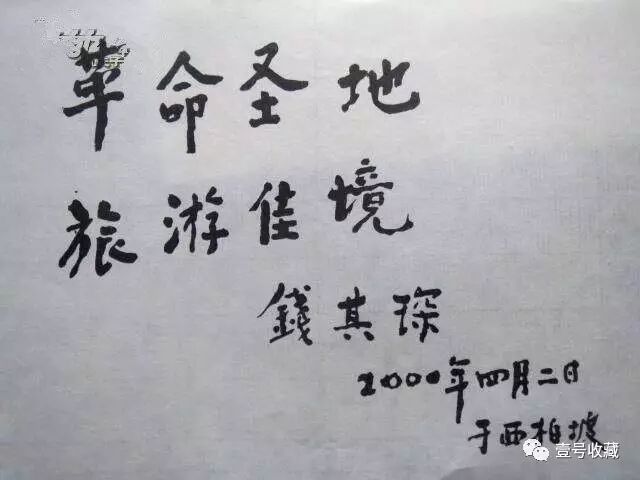 革命圣地
旅游佳境
錢其琛
2000年四月二日
于西柏坡
壹号收藏